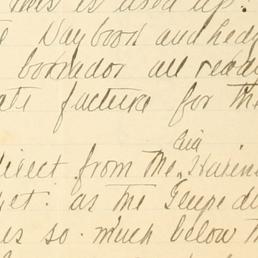 this is used up.
Daybook and Ledg
borrador all read
ate facture for the
direct from the
yet: as the
es so much below th